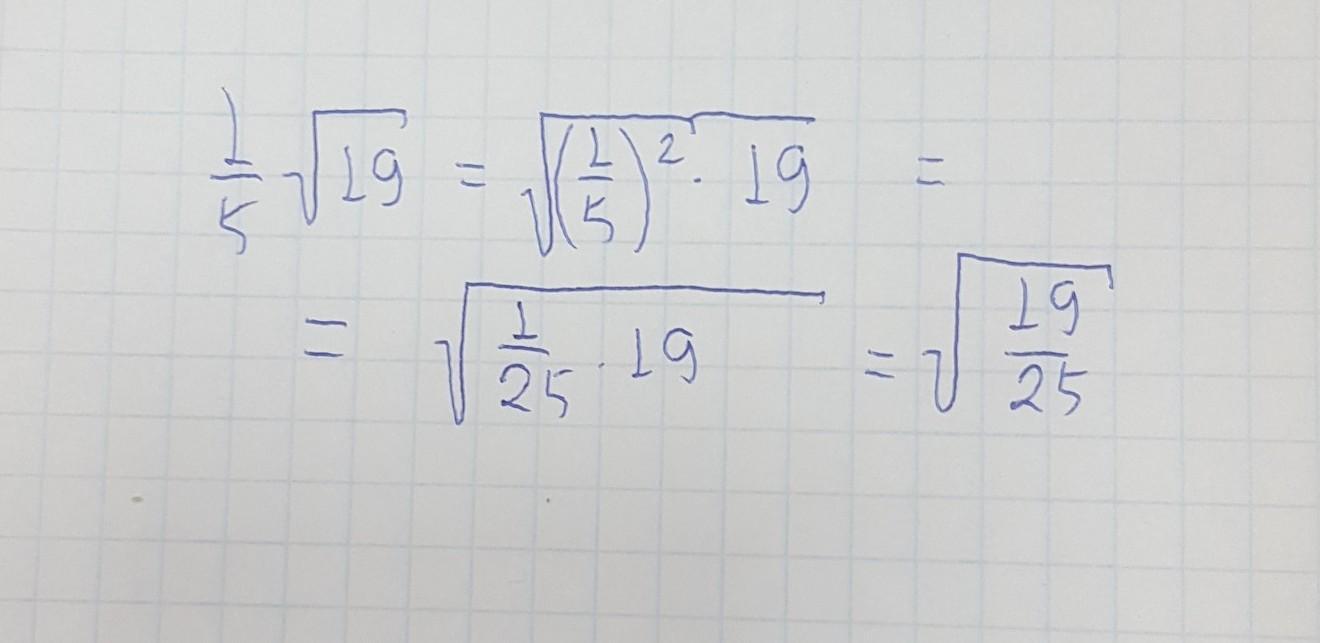 \frac{1}{5} \sqrt{19} = \sqrt{\left(\frac{1}{5}\right)^2 \cdot 19} =
= \sqrt{\frac{1}{25} \cdot 19} = \sqrt{\frac{19}{25}}